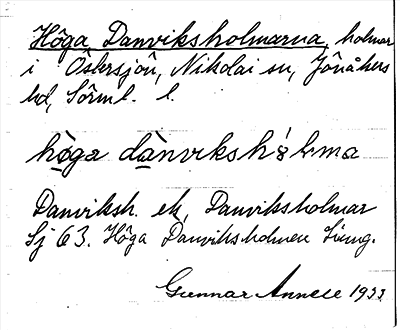 Höga Danviksholmarna, holmar
i Östersjön, Nikolai sn, Jönåkers
hd, Sörml. l.
höga dànviksh
Danviksh. ek, Danviksholmar
Sj 63. Höga Danviksholmen
Gunnar Annell 1933